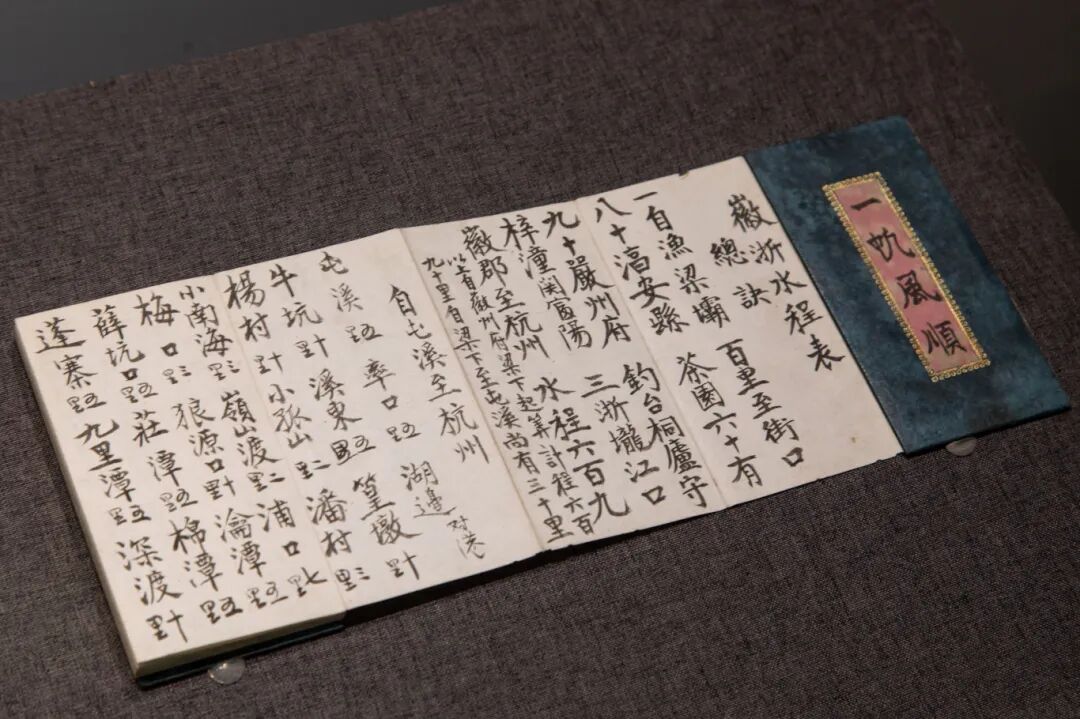 一帆風順
徽浙水程表
總訣
一自漁梁壩 百里至街口
八十湻安縣 茶園六十有
九十嚴州府 釣台桐廬守
梓潼関富陽 三浙壠江口
徽郡至杭州 水程六百九
以上自徽州府梁下起算計程六百
九十里自梁下至屯溪尚有三十里
自屯溪至杭州
屯溪 五里 率口 五里 湖邊 对港
牛坑 十里 溪東 五里 篁墩 十里
楊村 十里 小孤山 二里 潘村 三里
小南海 三里 嶺山渡 二里 浦口 七里
梅口 三里 狼源口 十里 瀹潭 五里
薛坑口 五里 莊潭 五里 棉潭 五里
蓬寨 五里 九里潭 五里 深渡 十里